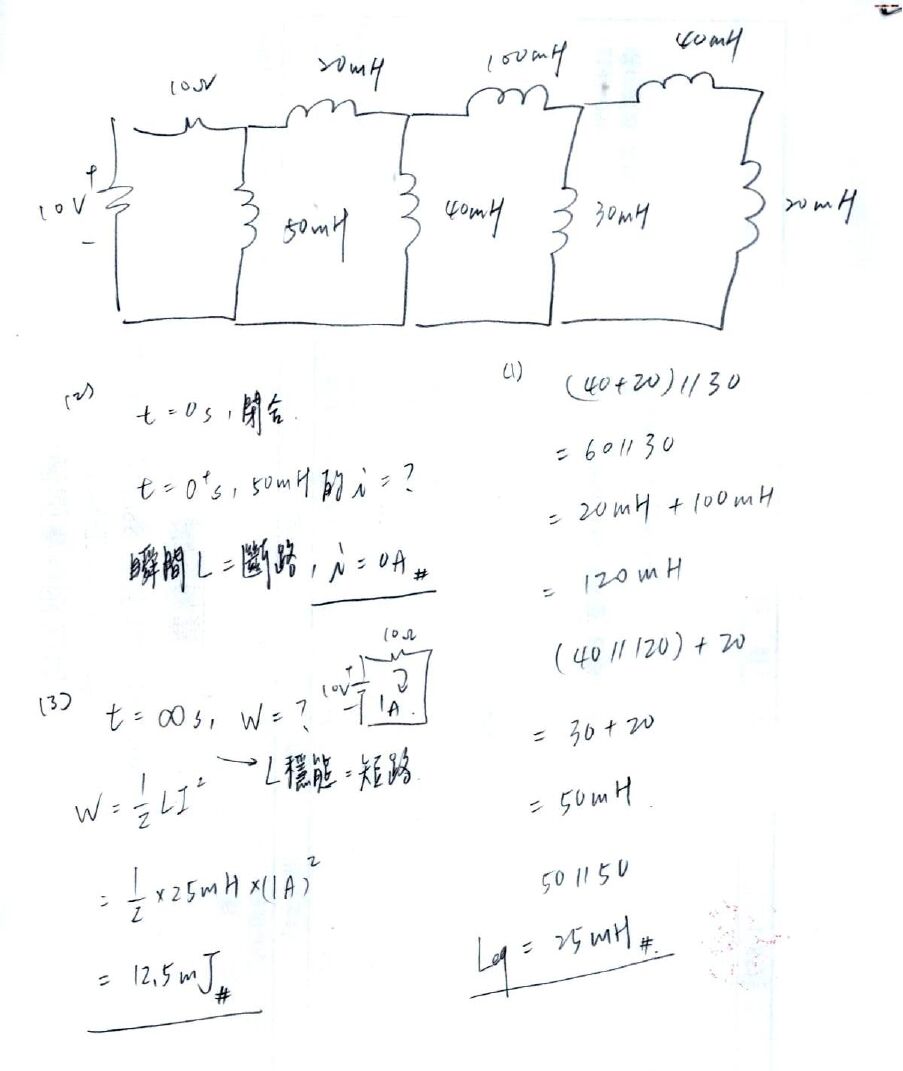 10Ω
20mH
100mH
40mH
+
10V
-
50mH
40mH
30mH
20mH
(1)
(40+20)//30
= 60//30
= 20mH + 100mH
= 120mH
(40//120) + 20
= 30+20
= 50mH.
50//50
Leq = 25mH #.
(2)
t=0s, 閉合.
t=0⁺s, 50mH 的 i=?
瞬間 L=斷路, i=0A #
(3)
t=∞s, W=?
10Ω
+
10V
-
1A.
W=½LI²
→ L穩態=短路.
= ½×25mH×(1A)²
= 12.5mJ #